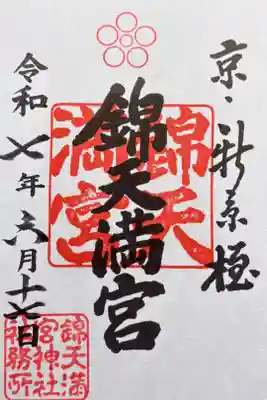 京・新京極
錦天満宮
錦天
満宮
令和七年六月十七日
錦天満
宮神社
務所